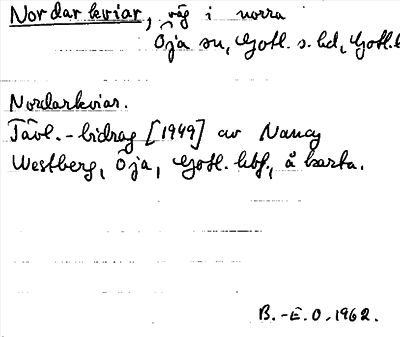 Nordarkviar, väg i norra
Öja sn, Gotl. s. hd, Gotl. l
Nordarkviar.
Tävl.-bidrag [1949] av Nancy
Westberg, Öja, Gotl. lbf., å karta.
B.-E. O. 1962.